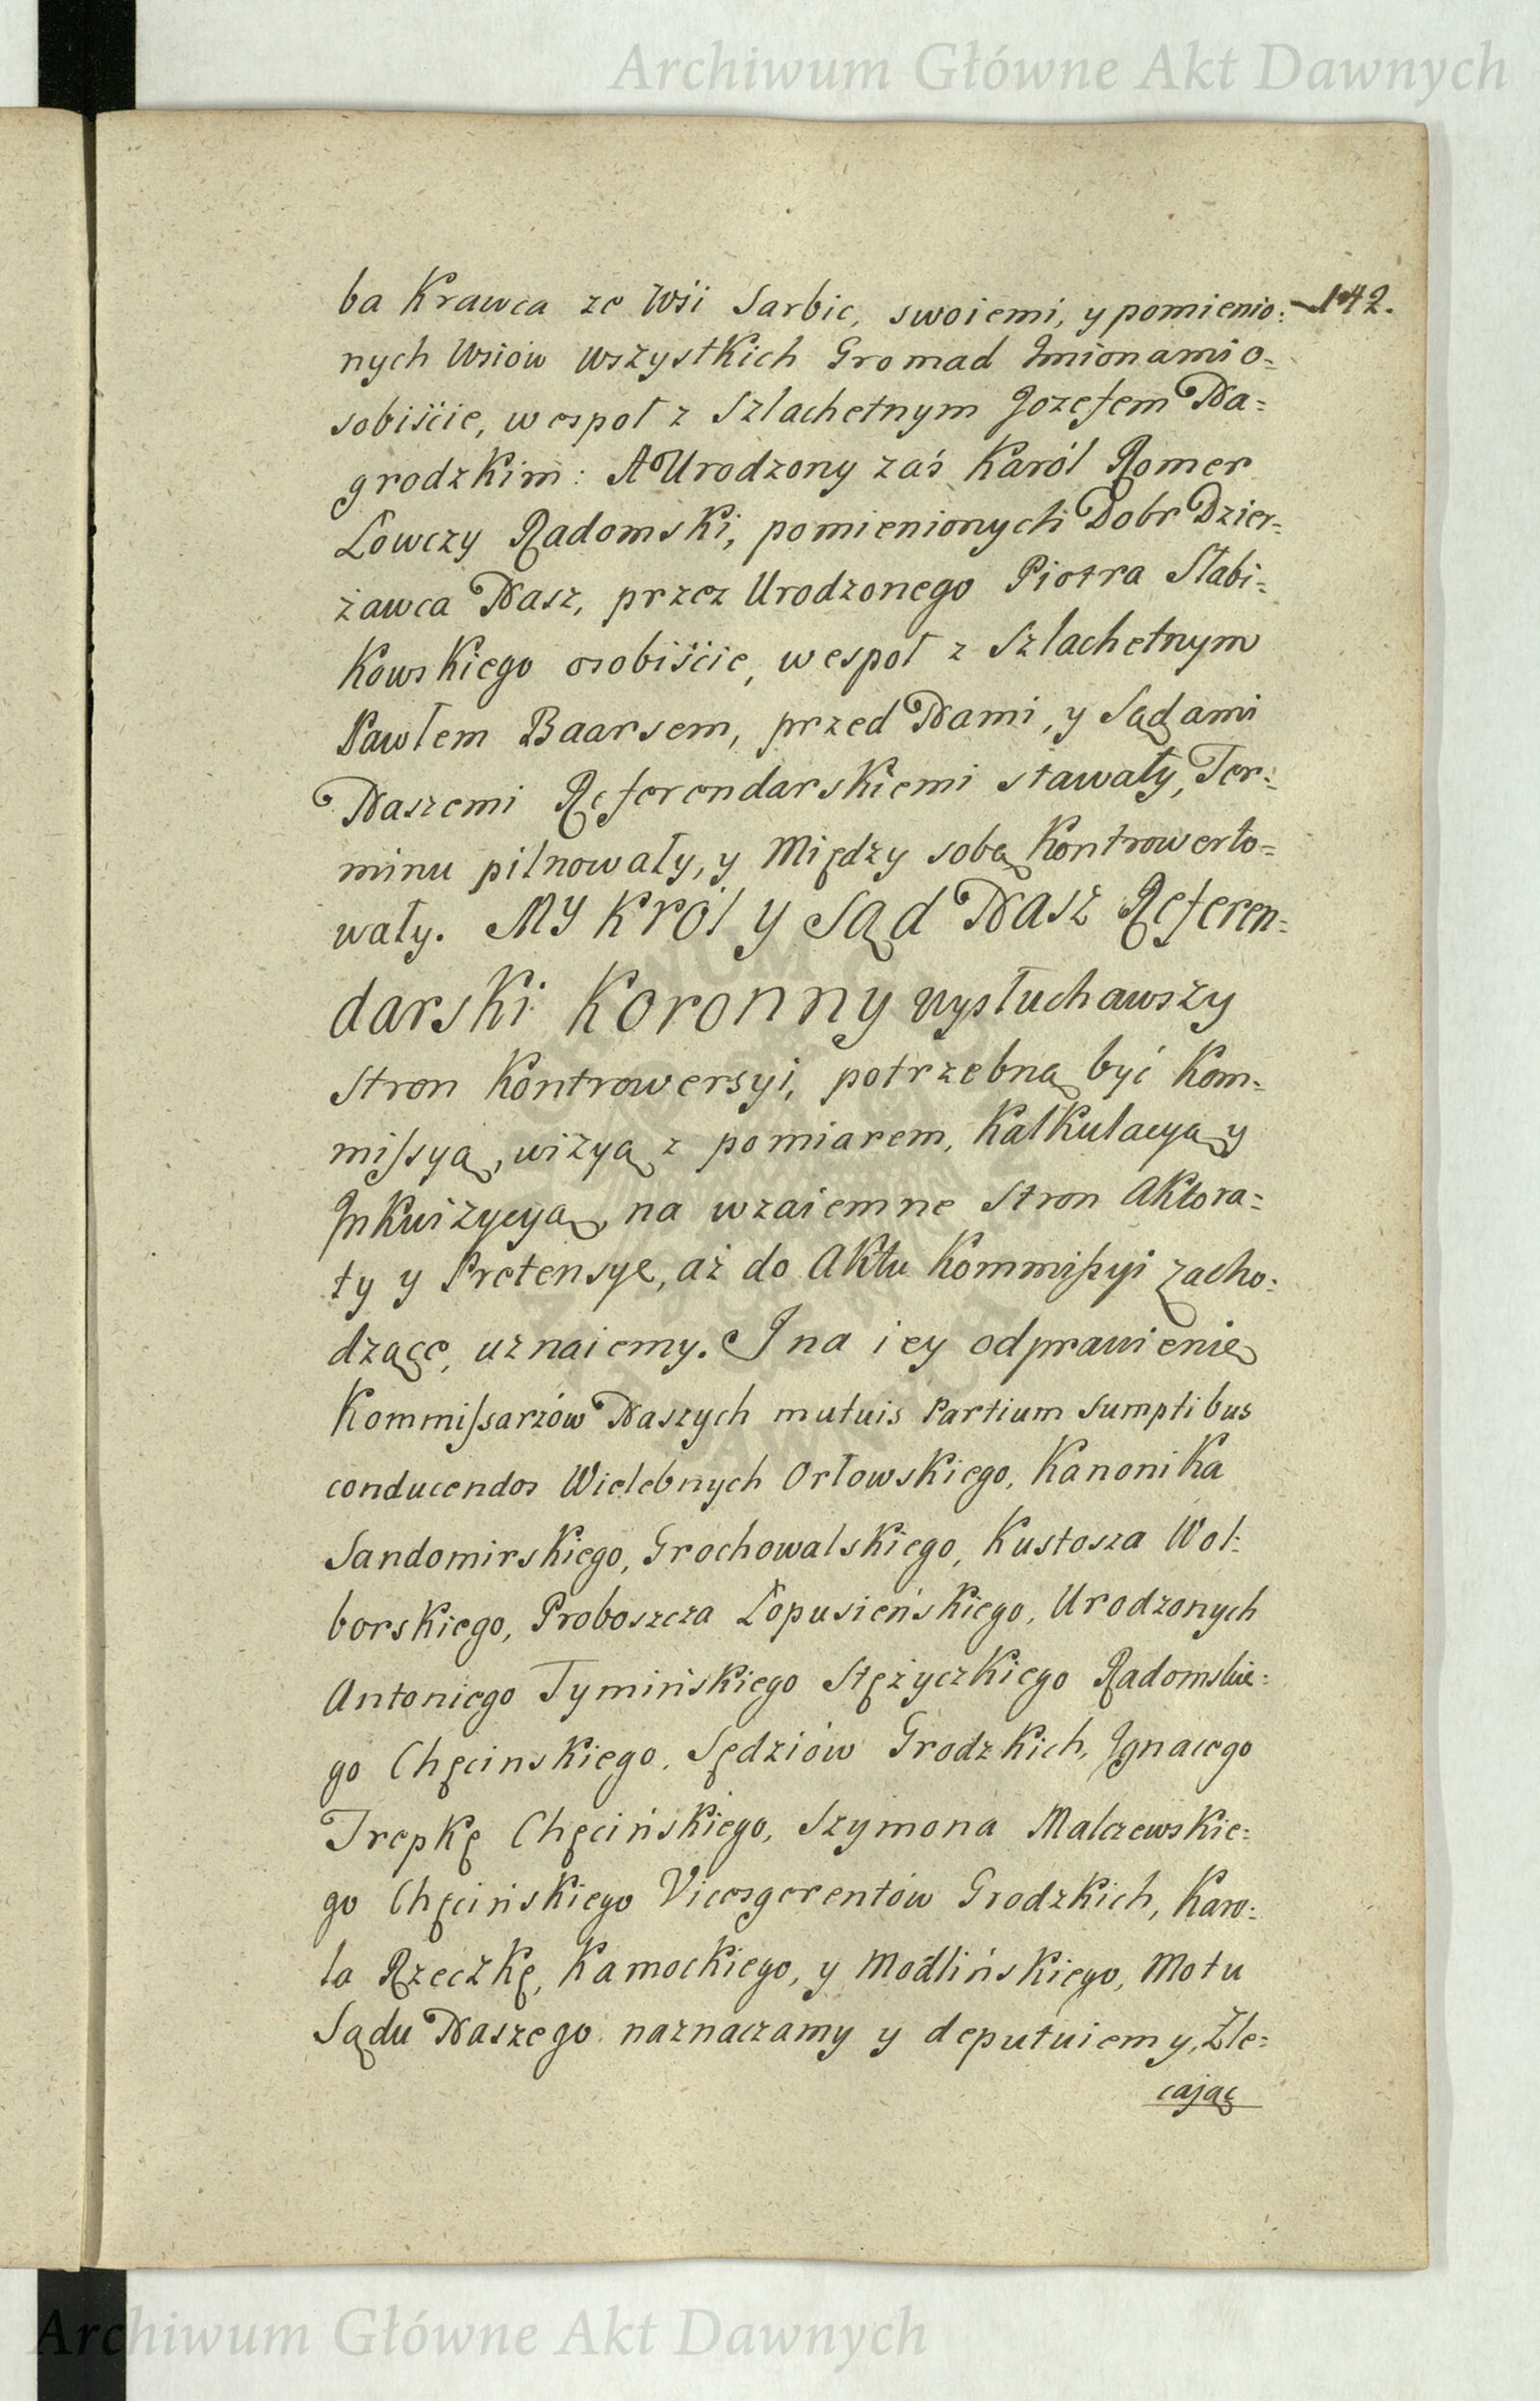 Archiwum Główne Akt Dawnych
ba Krawca ze Wśi Sarbic, swoiemi, y pomienio: 142.
nych Wsiow wszystkich Gromad Jmionami o=
sobiście, wespoł z Szlachetnym Jozefem Na=
grodzkim: A Urodzony zaś Karól Romer
Łowczy Radomski, pomienionych Dobr Dzier=
żawca Nasz, przez Urodzonego Piotra Słabi=
kowskiego osobiście, wespoł z Szlachetnym
Pawłem Baarsem, przed Nami, y Sądami
Naszemi Referendarskiemi stawały, Ter=
minu pilnowały, y Między sobą Kontrowerto=
wały. My Król y Sąd Nasz Referen=
darski Koronny wysłuchawszy
Stron Kontrowersyi, potrzebną być Kom=
missyą, wizyą z pomiarem, Kalkulacyą y
Jnkwizycyą, na wzaiemne Stron Aktora=
ty y Pretensye, aż do Aktu Kommissyi zacho:
dzące, uznaiemy. J na iey odprawienie
Kommissarzów Naszych mutuis Partium Sumptibus
conducendos Wielebnych Orłowskiego, Kanonika
Sandomirskiego, Grochowalskiego, Kustosza Wol:
borskiego, Proboszcza Łopusieńskiego, Urodzonych
Antoniego Tymińskiego Stężyczkiego Radomskie:
go Chęcinskiego, Sędziów Grodzkich, Jgnacego
Trepkę Chęcińskiego, Szymona Malczewskie:
go Chęcińskiego Vicesgerentów Grodzkich, Karo:
la Rzeczkę, Kamockiego, y Modlińskiego, Motu
Sądu Naszego naznaczamy y deputuiemy, Zle=
cając
Archiwum Główne Akt Dawnych